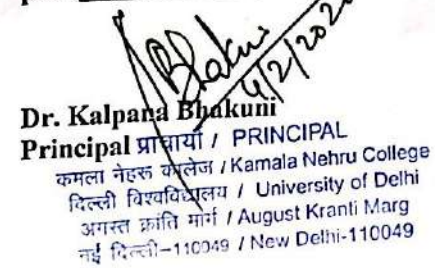 Bhakuni
4/2/202
Dr. Kalpana Bhakuni
Principal प्राचार्या / PRINCIPAL
कमला नेहरू कॉलेज / Kamala Nehru College
दिल्ली विश्वविद्यालय / University of Delhi
अगस्त क्रांति मार्ग / August Kranti Marg
नई दिल्ली-110049 / New Delhi-110049